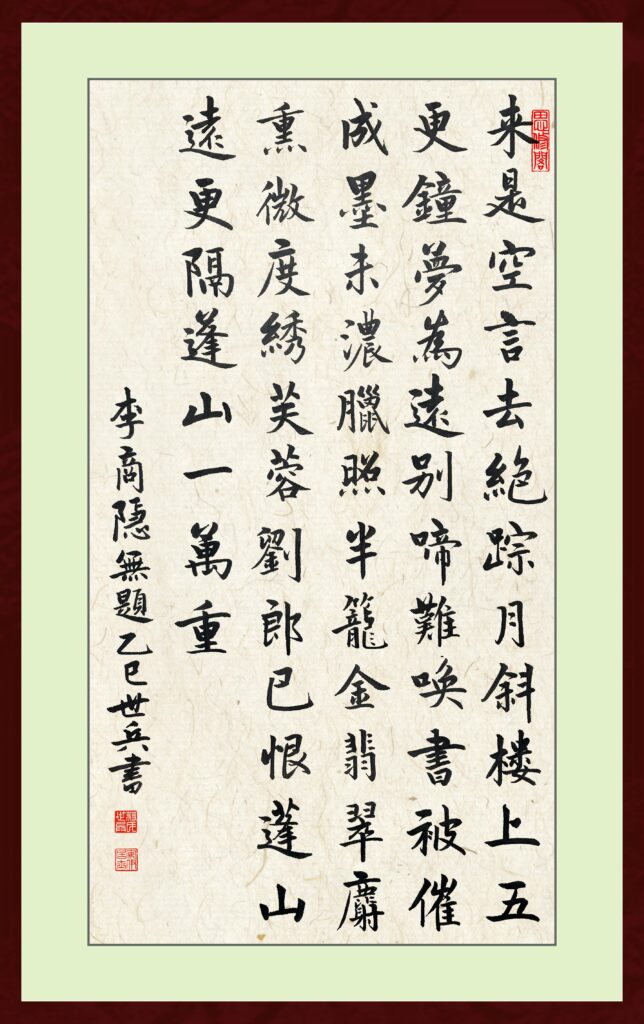 思修閣
来是空言去絶踪月斜楼上五
更鐘夢為遠别啼難唤書被催
成墨未濃臘照半籠金翡翠麝
熏微度綉芙蓉劉郎已恨蓬山
遠更隔蓬山一萬重
李商隱無題乙巳世兵書